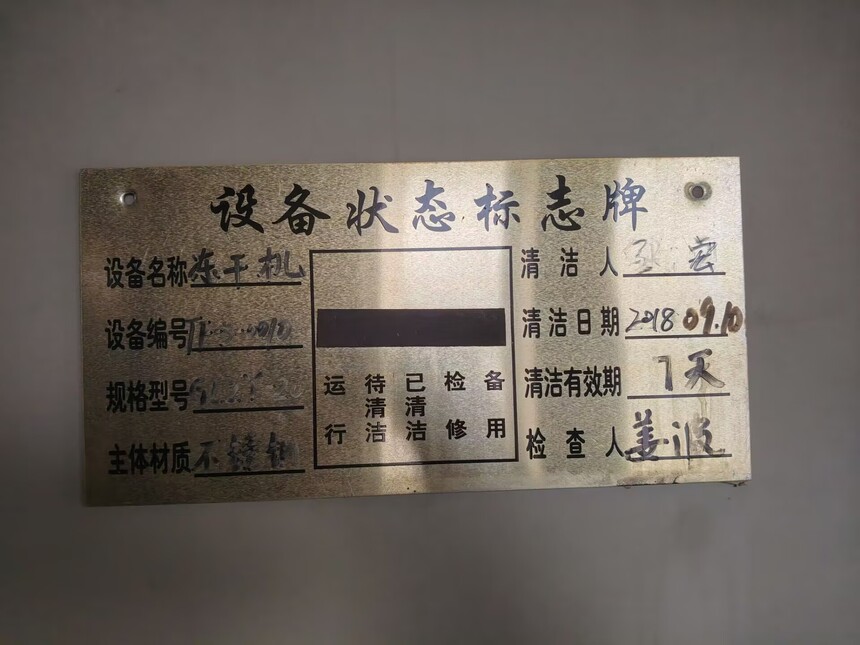 设备状态标志牌
设备名称 冻干机
设备编号
规格型号
主体材质 不锈钢
运行 待清洁 已清洁 检修 备用
清洁人
清洁日期 2018 09.10
清洁有效期 7天
检查人 姜波